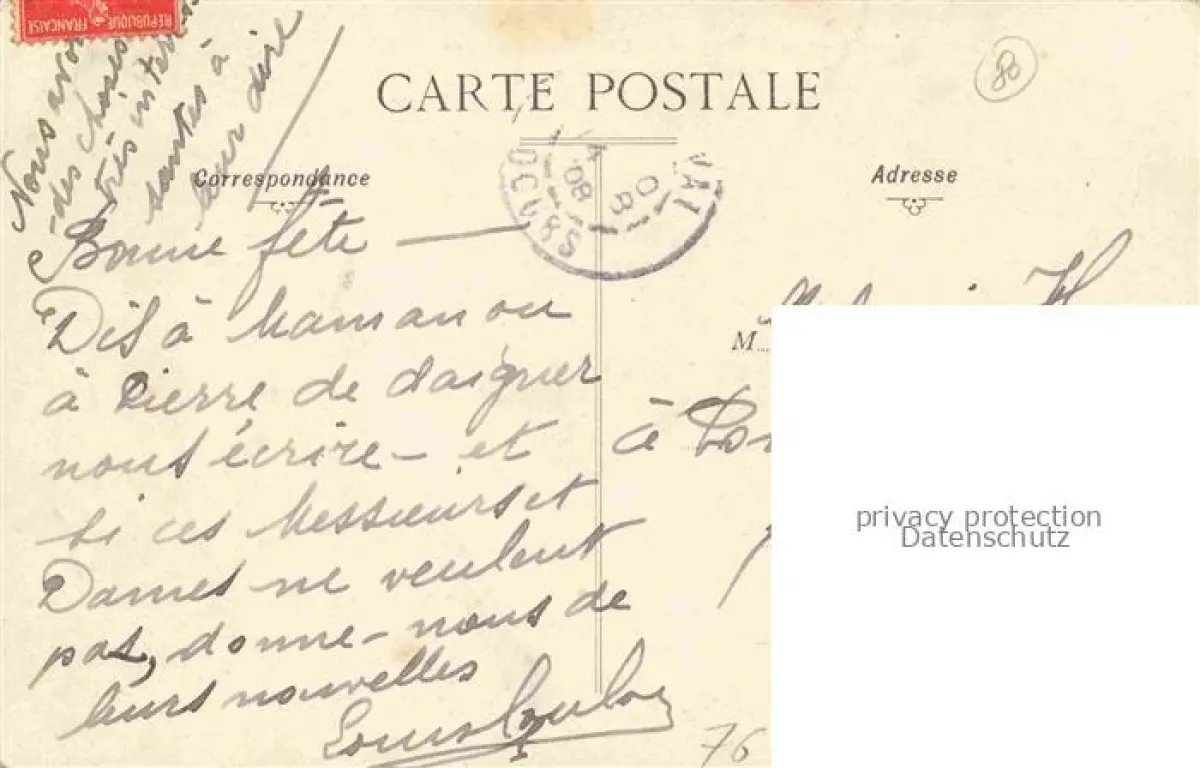 RÉPUBLIQUE FRANÇAISE
CARTE POSTALE
Correspondance
Adresse
Nous avons
des choses
très intéres
santes à
leur dire
Bonne fête —
Dis à Maman ou
à Pierre de daigner
nous écrire — et
si ces Messieurs et
Dames ne veulent
pas, donne-nous de
leurs nouvelles
Louis
M
à
08
76
privacy protection
Datenschutz